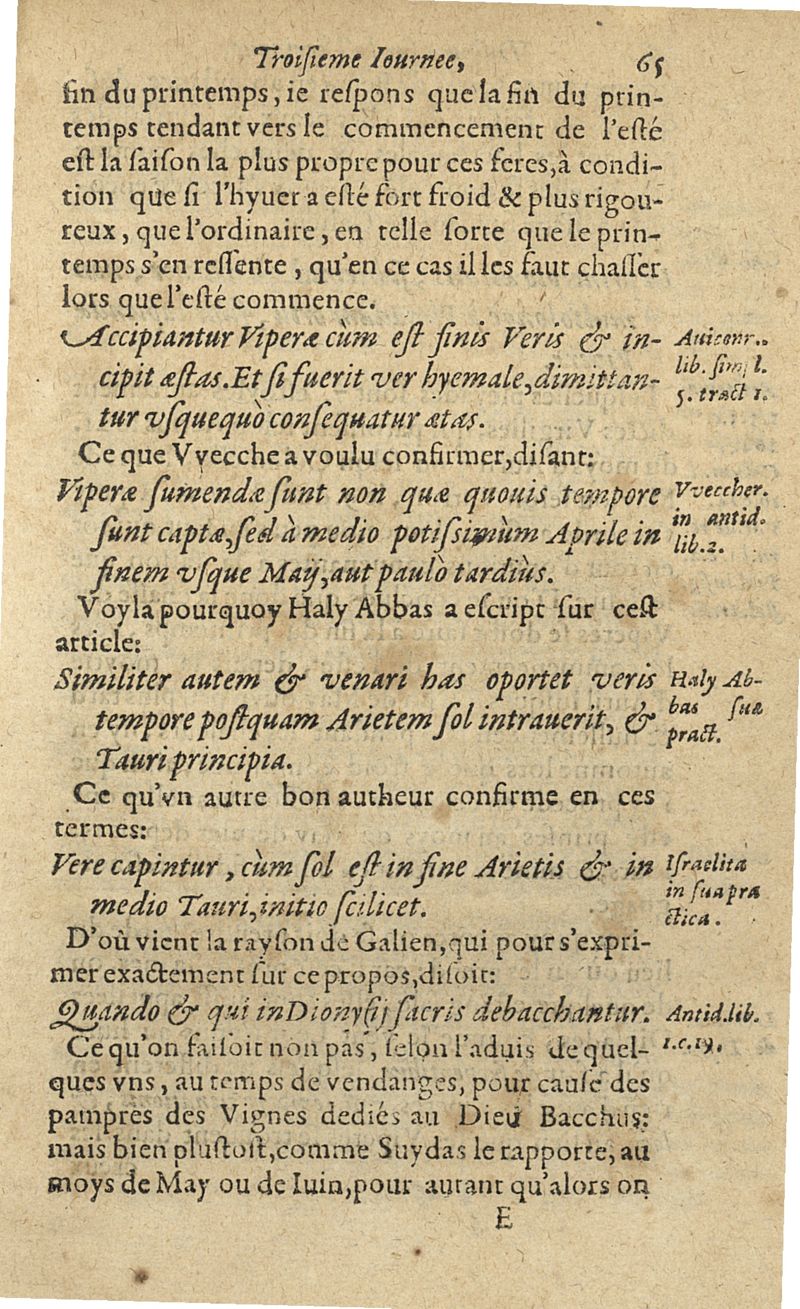 Troiſieme Iournee, 65
fin du printemps, ie reſpons que la fin du prin-
temps tendant vers le commencement de l'eſté
eſt la ſaiſon la plus propre pour ces feres, à condi-
tion que ſi l'hyuer a eſté fort froid & plus rigou-
reux, que l'ordinaire, en telle ſorte que le prin-
temps s'en reſſente, qu'en ce cas il les faut chaſſer
lors que l'eſté commence.
Accipiantur Viperæ cùm eſt finis Veris & in-
cipit æſtas. Et ſi fuerit ver hyemale, dimittan-
tur vſquequò conſequatur ætas.
Auicenr..
lib. ſimpl.
5. tract 1.
Ce que Vvecche a voulu confirmer, diſant:
Viperæ ſumendæ ſunt non quæ quouis tempore
ſunt captæ, ſed à medio potiſſimùm Aprile in
finem vſque Maij, aut paulò tardiùs.
Vveccher.
in antid.
lib. 2.
Voyla pourquoy Haly Abbas a eſcript ſur ceſt
article:
Similiter autem & venari has oportet veris
tempore poſtquam Arietem ſol intrauerit, &
Tauri principia.
Haly Ab-
bas ſua
pract.
Ce qu'vn autre bon autheur confirme en ces
termes:
Vere capintur, cùm ſol eſt in fine Arietis & in
medio Tauri, initio ſcilicet.
Iſraelita
in ſua præ
ctica.
D'où vient la rayſon de Galien, qui pour s'expri-
mer exactement ſur ce propos, diſoit:
Quando & qui in Dionyſij ſacris debacchantur.
Antid. lib.
1. c. 19.
Ce qu'on faiſoit non pas, ſelon l'aduis de quel-
ques vns, au temps de vendanges, pour cauſe des
pampres des Vignes dediés au Dieu Bacchus:
mais bien pluſtoſt, comme Suydas le rapporte, au
moys de May ou de Iuin, pour autant qu'alors on
E